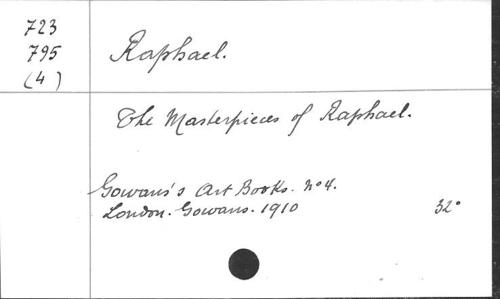 723
795
(4)
Raphael.
The Masterpieces of Raphael.
Gowans's Art Books. No 4.
London. Gowans. 1910
32°